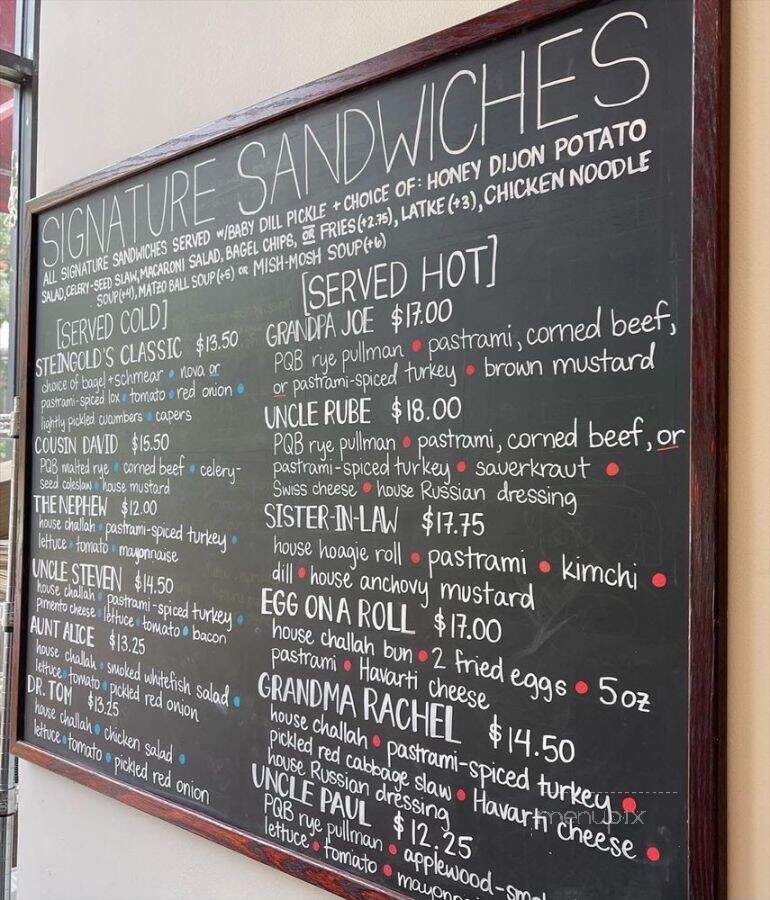 SIGNATURE SANDWICHES
ALL SIGNATURE SANDWICHES SERVED W/BABY DILL PICKLE + CHOICE OF: HONEY DIJON POTATO
SALAD, CELERY-SEED SLAW, MACARONI SALAD, BAGEL CHIPS, OR FRIES (+2.75), LATKE (+3), CHICKEN NOODLE
SOUP (+4), MATZO BALL SOUP (+5) OR MISH-MOSH SOUP (+6)
[SERVED COLD]
STEINGOLD'S CLASSIC $13.50
choice of bagel + schmear • nova or
pastrami-spiced lox • tomato • red onion •
lightly pickled cucumbers • capers
COUSIN DAVID $15.50
PQB malted rye • corned beef • celery-
seed coleslaw • house mustard
THE NEPHEW $12.00
house challah • pastrami-spiced turkey •
lettuce • tomato • mayonnaise
UNCLE STEVEN $14.50
house challah • pastrami-spiced turkey •
pimento cheese • lettuce • tomato • bacon
AUNT ALICE $13.25
house challah • smoked whitefish salad •
lettuce • tomato • pickled red onion
DR. TOM $13.25
house challah • chicken salad •
lettuce • tomato • pickled red onion
[SERVED HOT]
GRANDPA JOE $17.00
PQB rye pullman • pastrami, corned beef,
or pastrami-spiced turkey • brown mustard
UNCLE RUBE $18.00
PQB rye pullman • pastrami, corned beef, or
pastrami-spiced turkey • sauerkraut •
Swiss cheese • house Russian dressing
SISTER-IN-LAW $17.75
house hoagie roll • pastrami • kimchi •
dill • house anchovy mustard
EGG ON A ROLL $17.00
house challah bun • 2 fried eggs • 5oz
pastrami • Havarti cheese
GRANDMA RACHEL $14.50
house challah • pastrami-spiced turkey •
pickled red cabbage slaw • Havarti cheese •
house Russian dressing
UNCLE PAUL $12.25
PQB rye pullman • applewood-smo
lettuce • tomato • mayonn
menupix